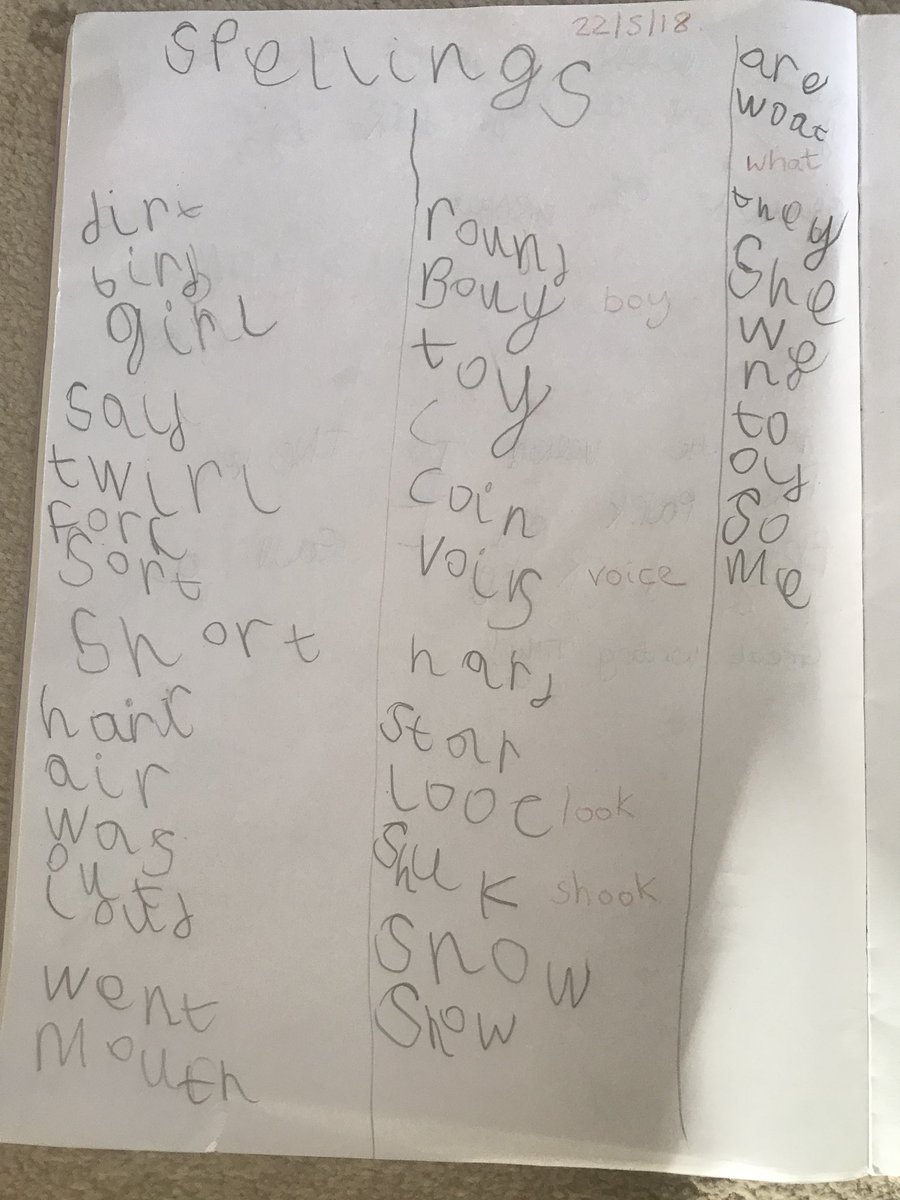 spellings 22/5/18.
dirt
bird
girl
say
twirl
fork
sort
short
air
was
out
went
mouth
round
Bouy boy
toy
coin
Voirs voice
hard
star
looc look
shuk shook
snow
Show
are
woat
what
they
She
we
to
so
me